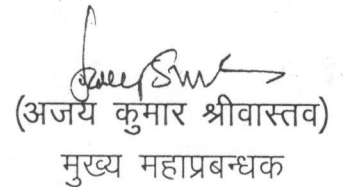 (अजय कुमार श्रीवास्तव)
मुख्य महाप्रबन्धक